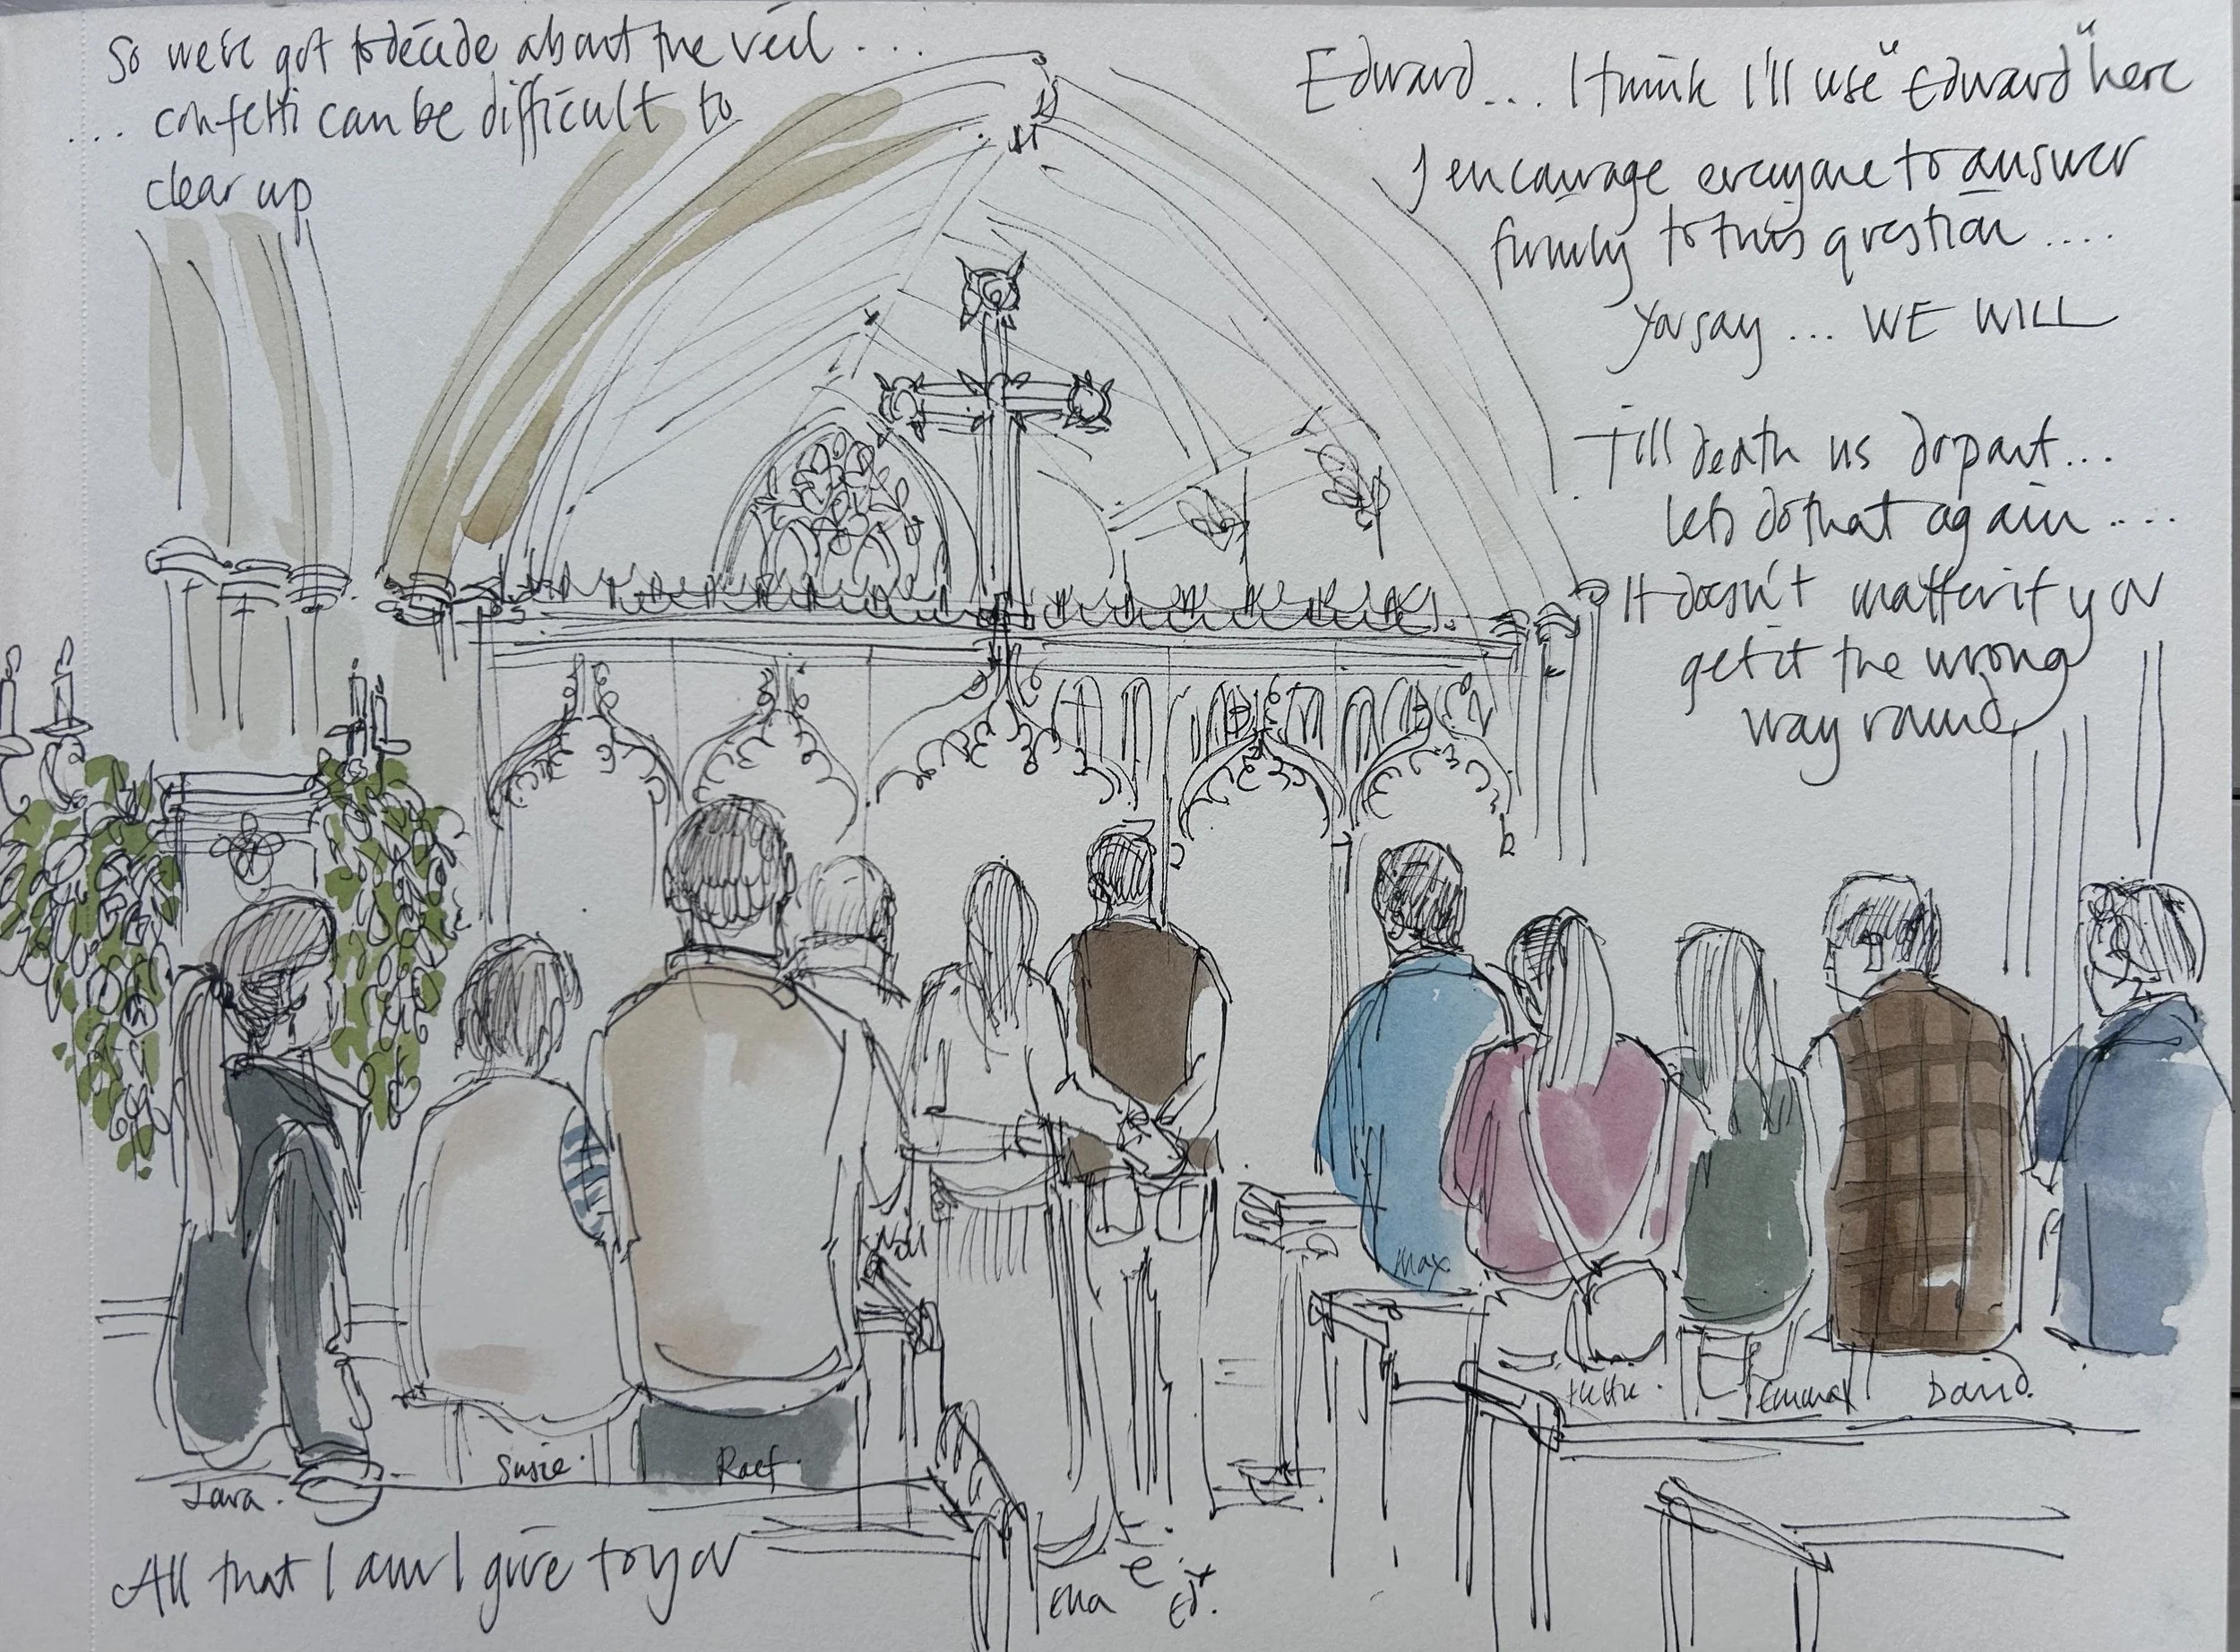 So we've got to decide about the veil ....
.... confetti can be difficult to
clear up
Edward.... I think I'll use "Edward" here
I encourage everyone to answer
firmly to this question ....
You say ... WE WILL
Till death us do part...
lets do that again ....
It doesn't matter if you
get it the wrong
way round
Max
Hettie.
Emma
David.
Susie.
Raef.
Lara.
All that I am I give to you
Ella
e
Ed.